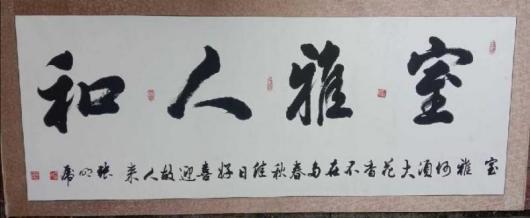 室雅人和
室雅何须大花香不在多春秋佳日好喜迎故人来张